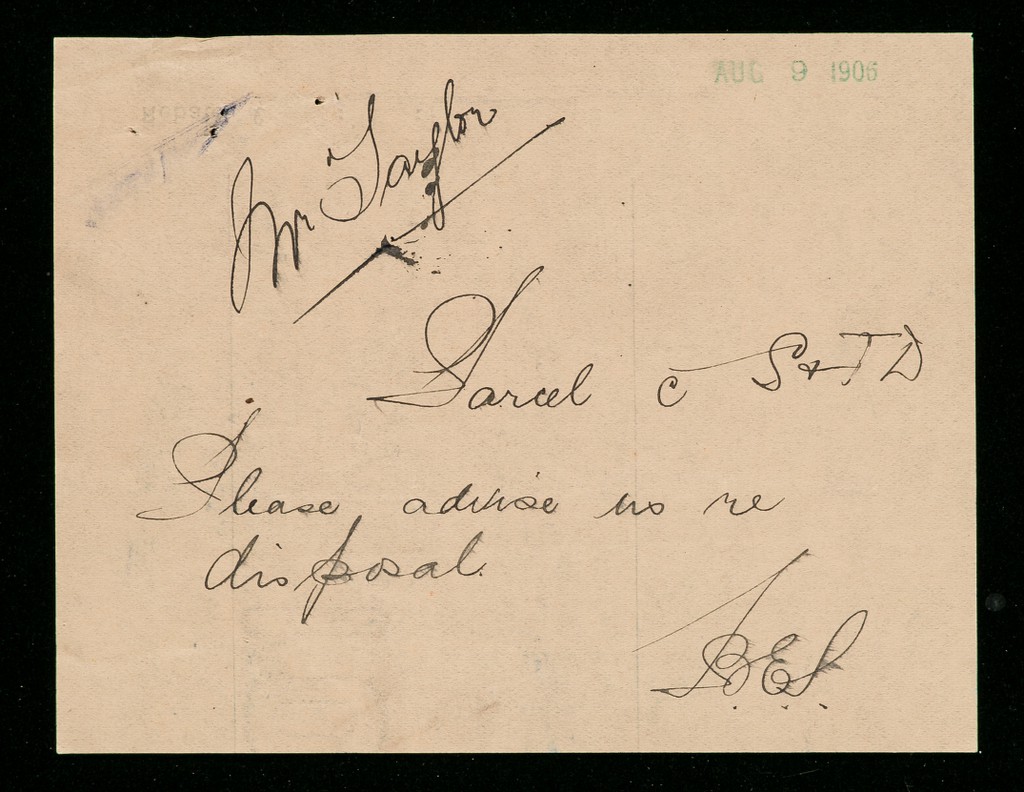 AUG 9 1906
Mr Taylor
Parcel c S & T D
Please advise us re
disposal.
B.E.S.